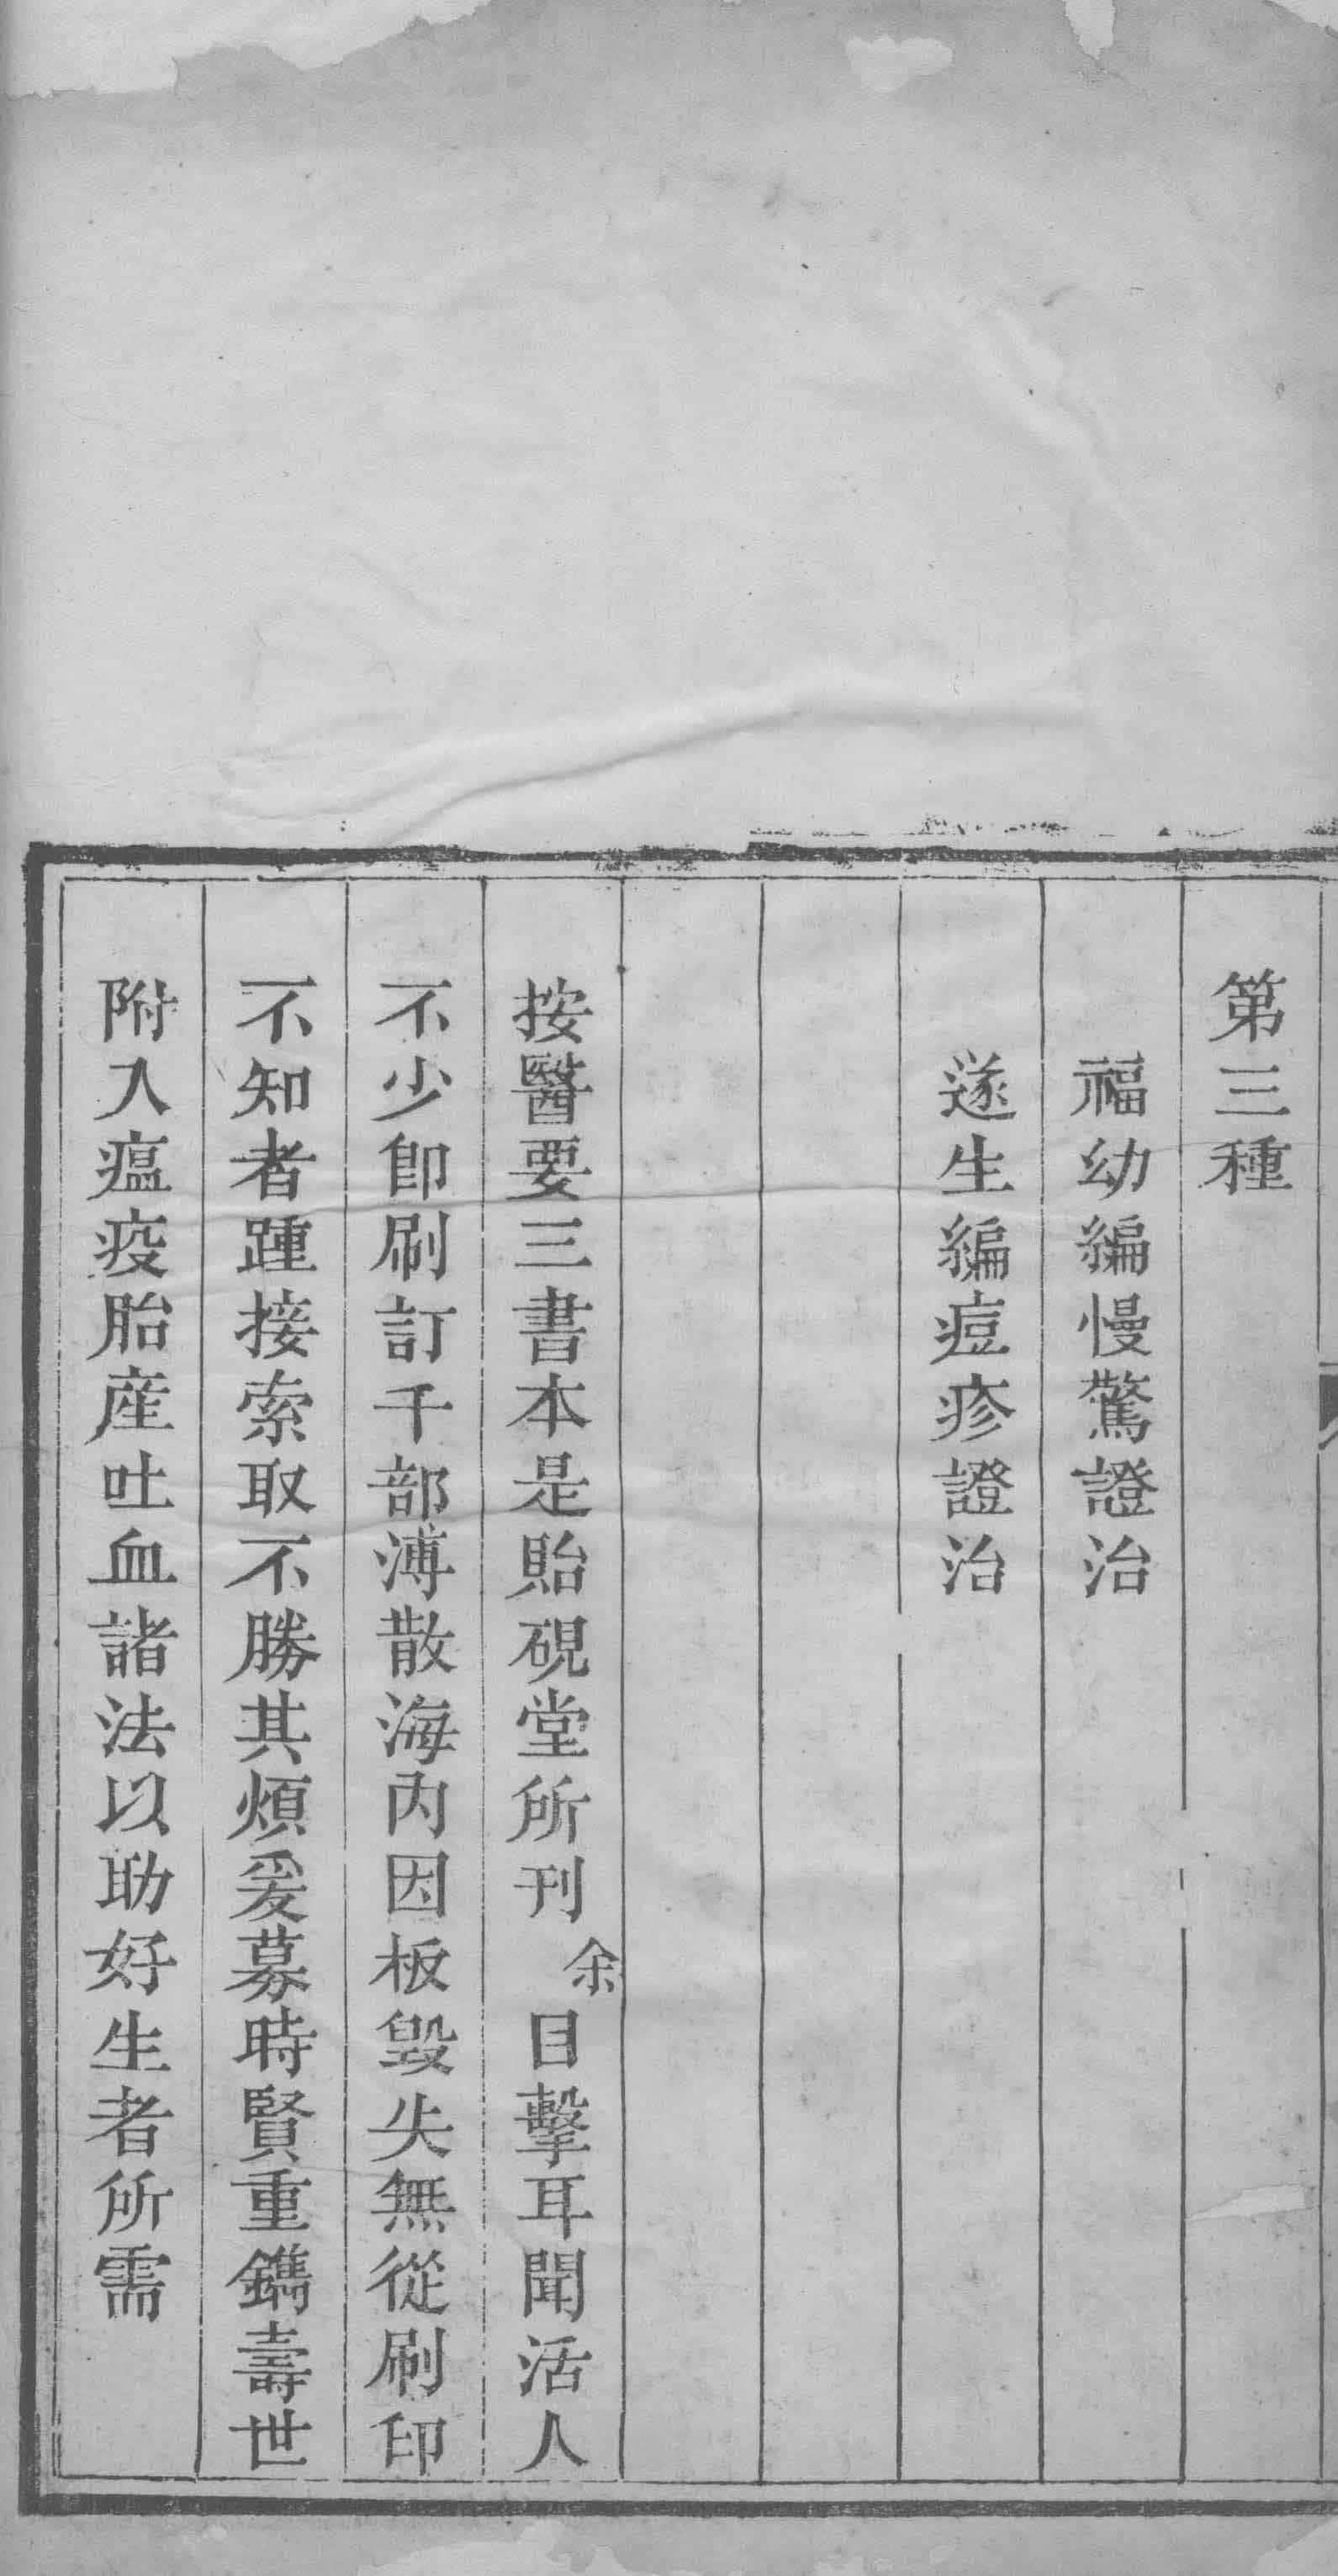 第三種
福幼編慢驚證治
遂生編痘疹證治
按醫要三書本是貽硯堂所刊余目擊耳聞活人
不少卽刷訂千部溥散海內因板毀失無從刷印
不知者踵接索取不勝其煩爰募時賢重鐫壽世
附入瘟疫胎産吐血諸法以助好生者所需